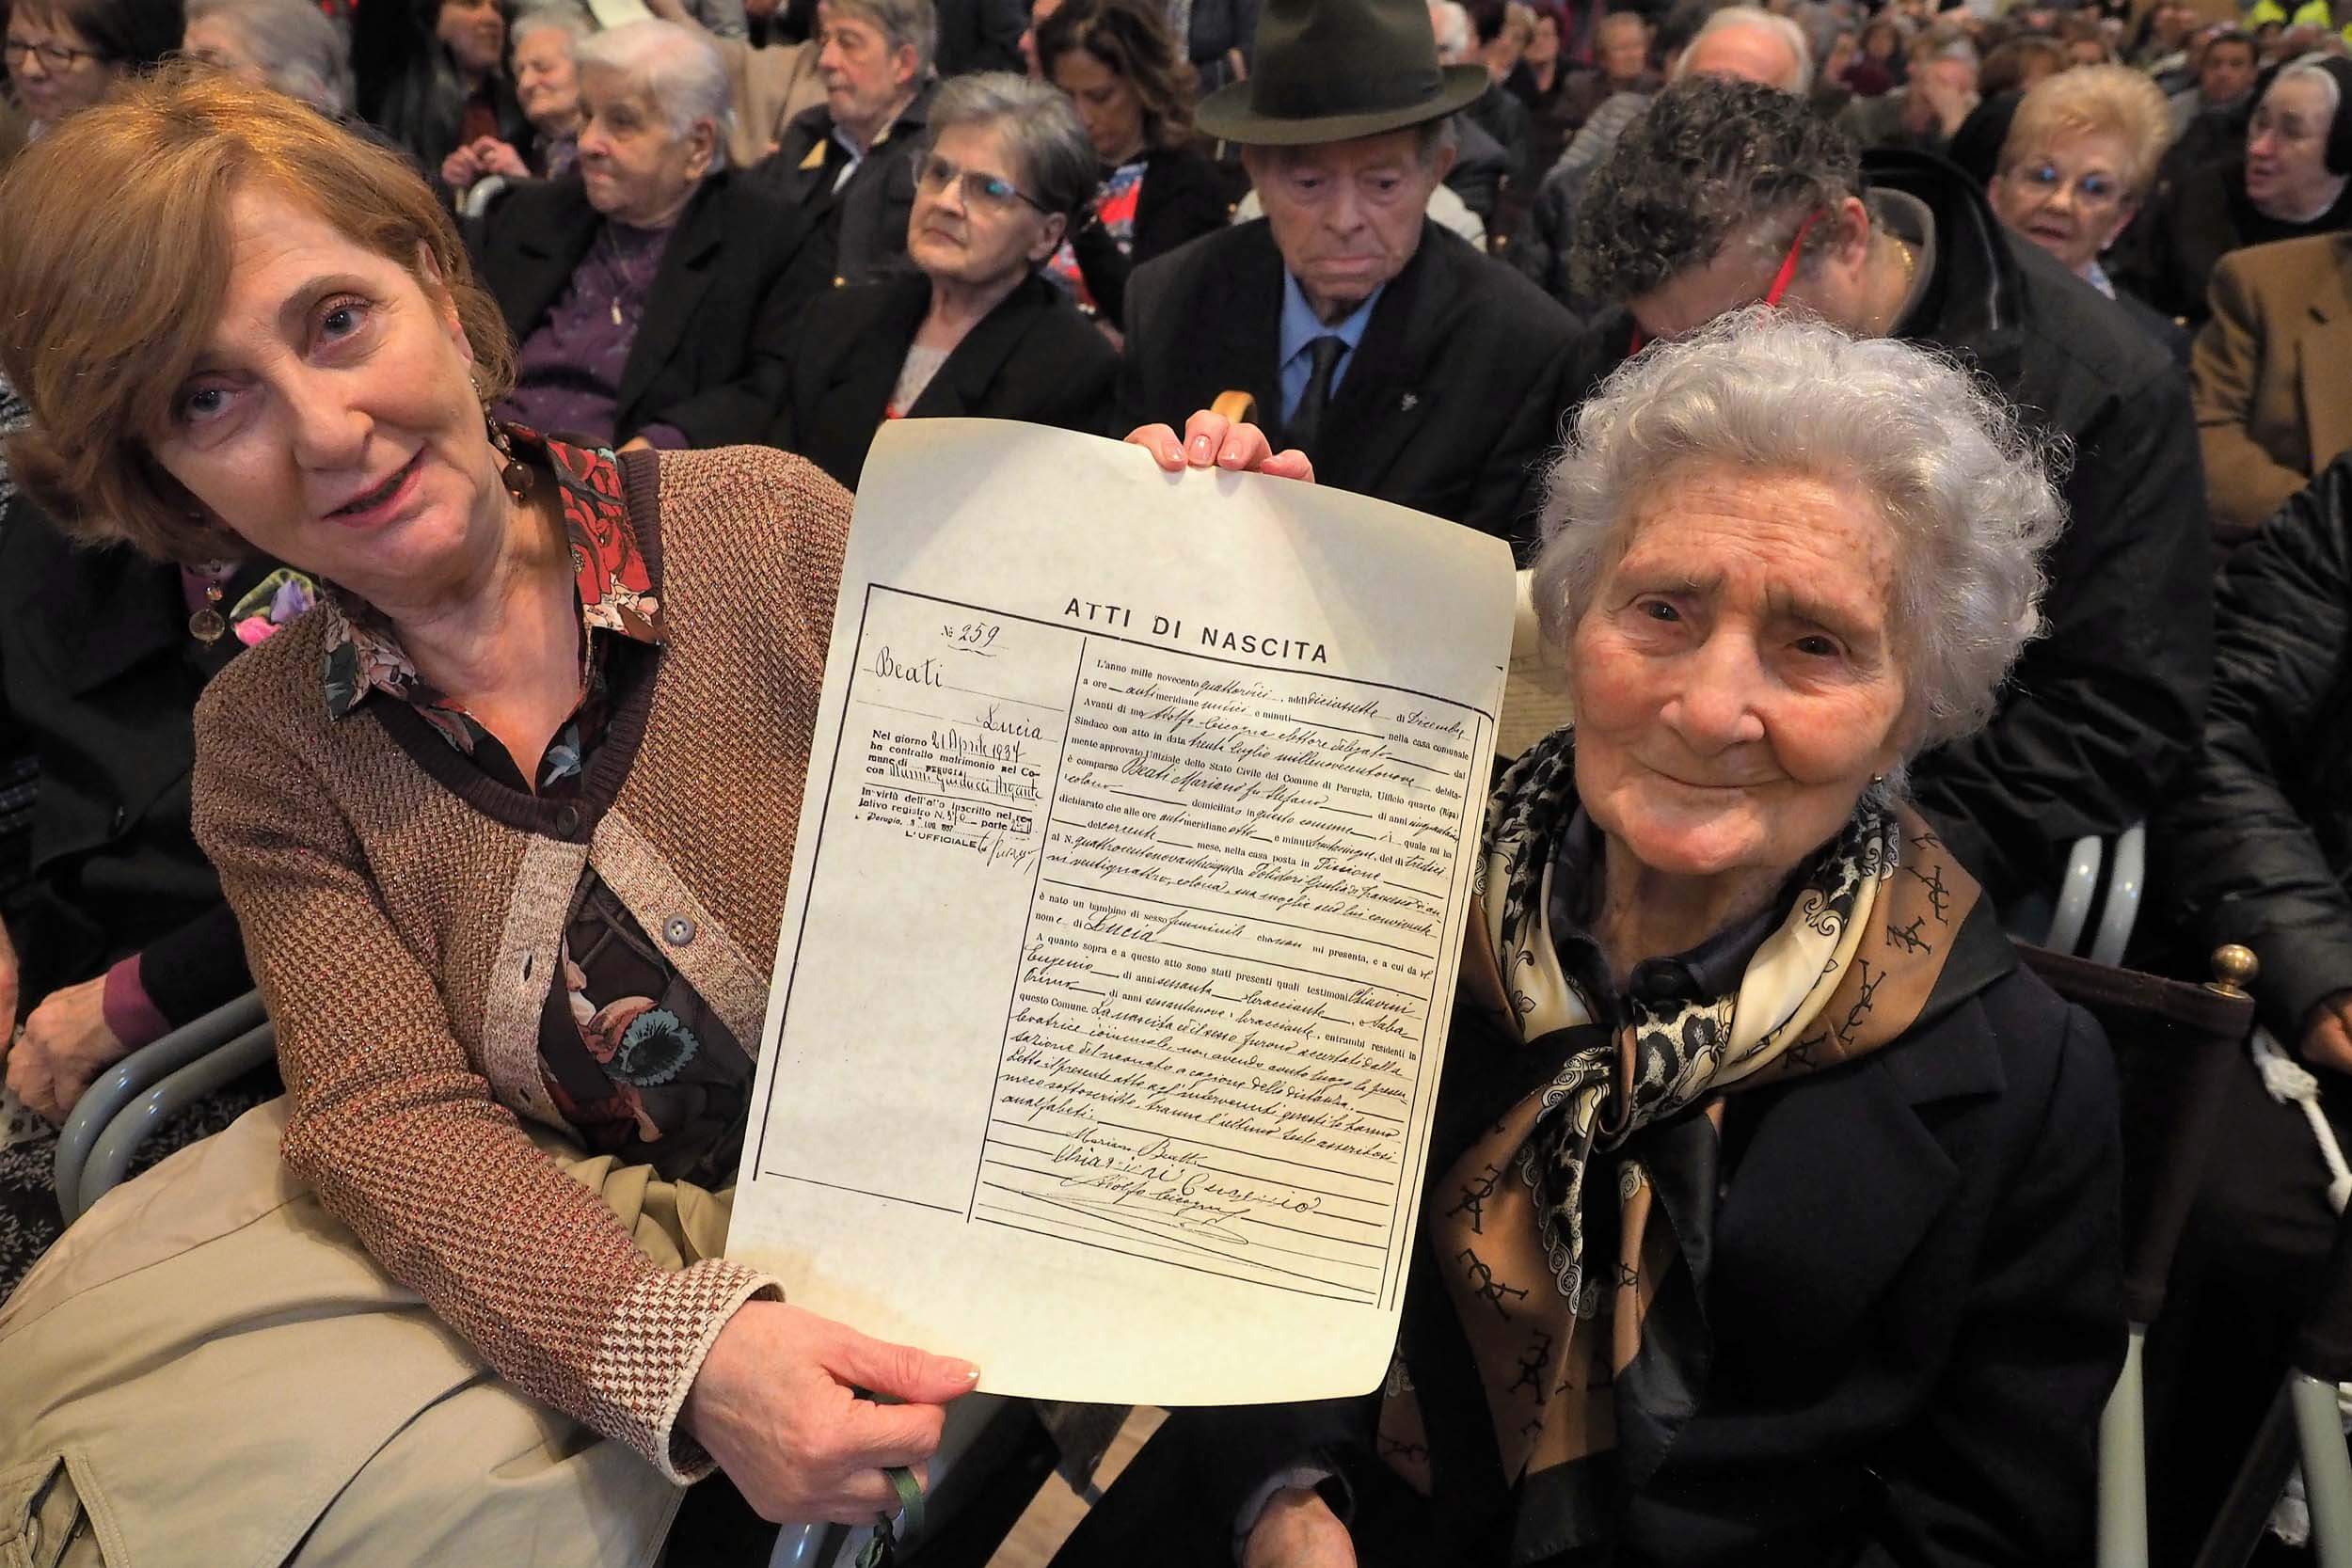 ATTI DI NASCITA
№ 259
Beati
Lucia
Nel giorno 21 Aprile 1937
ha contratto matrimonio nel Co-
mune di PERUGIA
con Nanni Guiducci
In virtù dell'atto inscritto nel re-
lativo registro N. parte
Perugia,
L'UFFICIALE
L'anno mille novecento quattordici, addì diciassette di Dicembre
a ore antimeridiane undici e minuti nella casa comunale
Avanti di me Adolfo Cicogna assessore delegato dal
Sindaco con atto in data trenta luglio millenovecentonove debita-
mente approvato Uffiziale dello Stato Civile del Comune di Perugia, Ufficio quarto (Ripa)
è comparso Beati Mariano fu Stefano di anni
colono domiciliato in questo comune il quale mi ha
dichiarato che alle ore antimeridiane otto e minuti del dì tredici
del corrente mese, nella casa posta in
al N. quattrocentonovantacinque da Polidori Giulia di Francesco di an-
ni ventiquattro, colona, sua moglie seco lui convivente
è nato un bambino di sesso femminile che non mi presenta, e a cui dà il
nome di Lucia
A quanto sopra e a questo atto sono stati presenti quali testimoni Chiavini
Eugenio di anni sessanta bracciante Saba
Primo di anni bracciante, entrambi residenti in
questo Comune. La nascita ed il sesso furono accertati dalla
levatrice comunale, non avendo avuto luogo la presen-
tazione del neonato a cagione della distanza.
Letto il presente atto agl'intervenuti questi lo hanno
meco sottoscritto, tranne l'ultimo teste asseritosi
analfabeta.
Mariano Beati
Chiavini Eugenio
Adolfo Cicogna